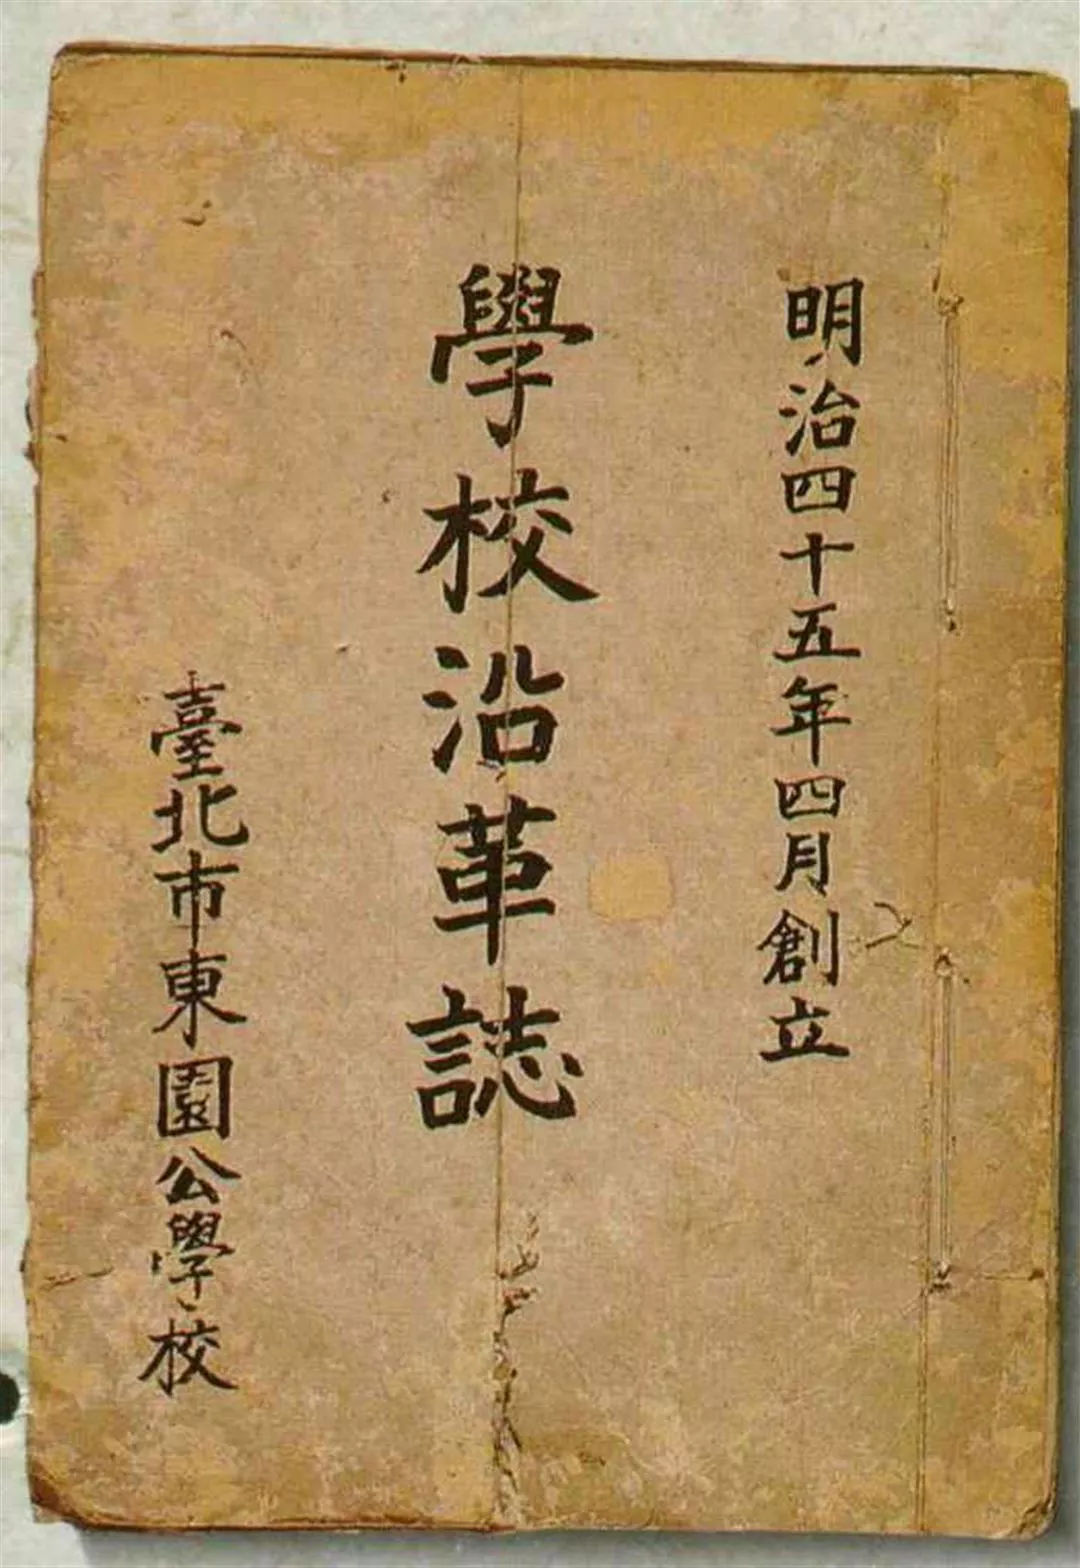 明治四十五年四月創立
學校沿革誌
臺北市東園公學校